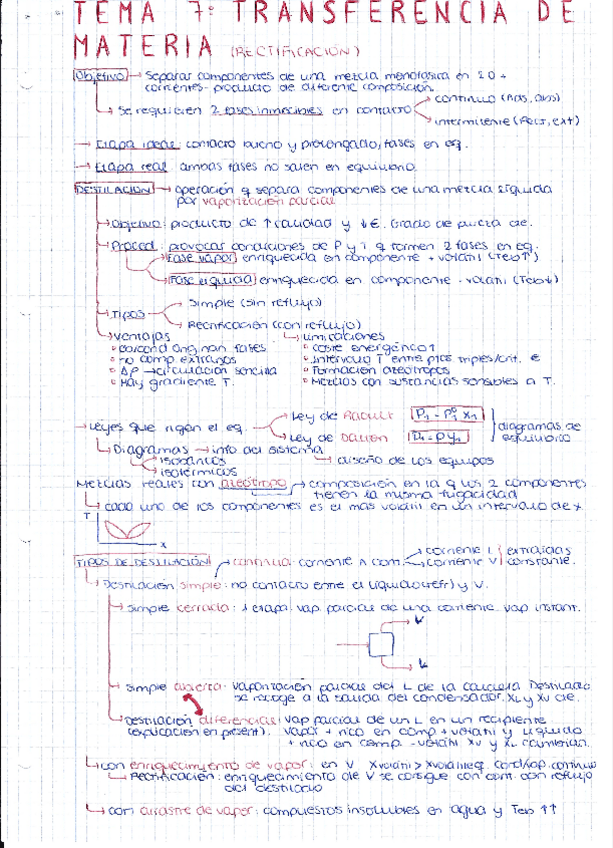 TEMA 7: TRANSFERENCIA DE
MATERIA (RECTIFICACIÓN)
Objetivo → Separar componentes de una mezcla monofásica en 2 o +
corrientes-producto de diferente composición.
→ Se requieren 2 fases inmiscibles en contacto → continuo (Abs, Dos)
→ intermitente (Rect, ext)
→ Etapa ideal: contacto bueno y prolongado, fases en eq.
→ Etapa real: ambas fases no salen en equilibrio.
DESTILACIÓN → operación q separa componentes de una mezcla líquida
por vaporización parcial
→ Objetivo: producto de ↑ calidad y ↓€. Grado de pureza cte.
→ Proced: provocar condiciones de P y T q formen 2 fases en eq.
Fase vapor enriquecida en componente + volátil (Teb↑)
Fase líquida enriquecida en componente - volátil (Teb↓)
→ Tipos → Simple (sin reflujo)
→ Rectificación (con reflujo)
→ Ventajas → Limitaciones
° no comp. extraños ° coste energético ↑
° ΔP → circulación sencilla ° Formación azeótropos
° Hay gradiente T. ° Mezclas con sustancias sensibles a T.
→ Leyes que rigen el eq. → Ley de Raoult P₁ = P₁⁰ x₁ diagramas de
→ Ley de Dalton P₁ = P y₁ equilibrio
→ Diagramas → info del sistema
→ isobáricos → diseño de los equipos
→ isotérmicos
Mezclas reales con azeótropo → composición en la q los 2 componentes
tienen la misma fugacidad
→ cada uno de los componentes es el más volátil en un intervalo de x
T
x
TIPOS DE DESTILACIÓN → continua: corriente A cont. → corriente L extraídas
→ corriente V constante.
→ Destilación simple: no contacto entre el líquido (refr) y V.
→ Simple cerrada: 1 etapa vap parcial de una corriente. vap instant.
V
L
→ Simple abierta: vaporización parcial del L de la caldera. Destilado
se recoge a la salida del condensador. XL y XV cte.
→ Destilación diferencial: vap parcial de un L en un recipiente
(explicación en present). Vapor + rico en comp + volátil y líquido
+ rico en comp. - volátil. XV y XL
→ con enriquecimiento de vapor: en V Xvolátil > Xvolátil eq.
→ Rectificación: enriquecimiento de V se consigue con cont. con reflujo
del destilado
→ con arrastre de vapor: compuestos insolubles en agua y Teb ↑↑